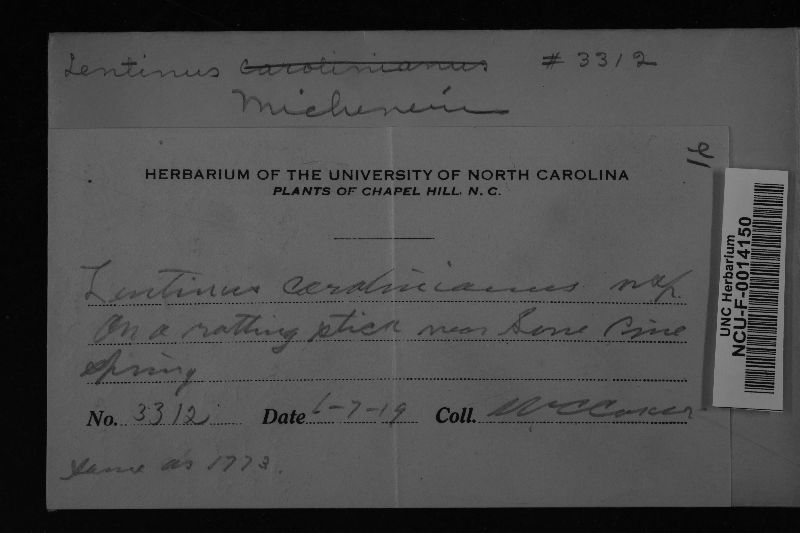 Lentinus carolinianus # 3312
Micheneri
16
HERBARIUM OF THE UNIVERSITY OF NORTH CAROLINA
PLANTS OF CHAPEL HILL, N. C.
Lentinus carolinianus n. sp.
On a rotting stick near Lone Pine
Spring
No. 3312 Date 6-7-19 Coll. W C Coker
Same as 1773.
UNC Herbarium
NCU-F-0014150